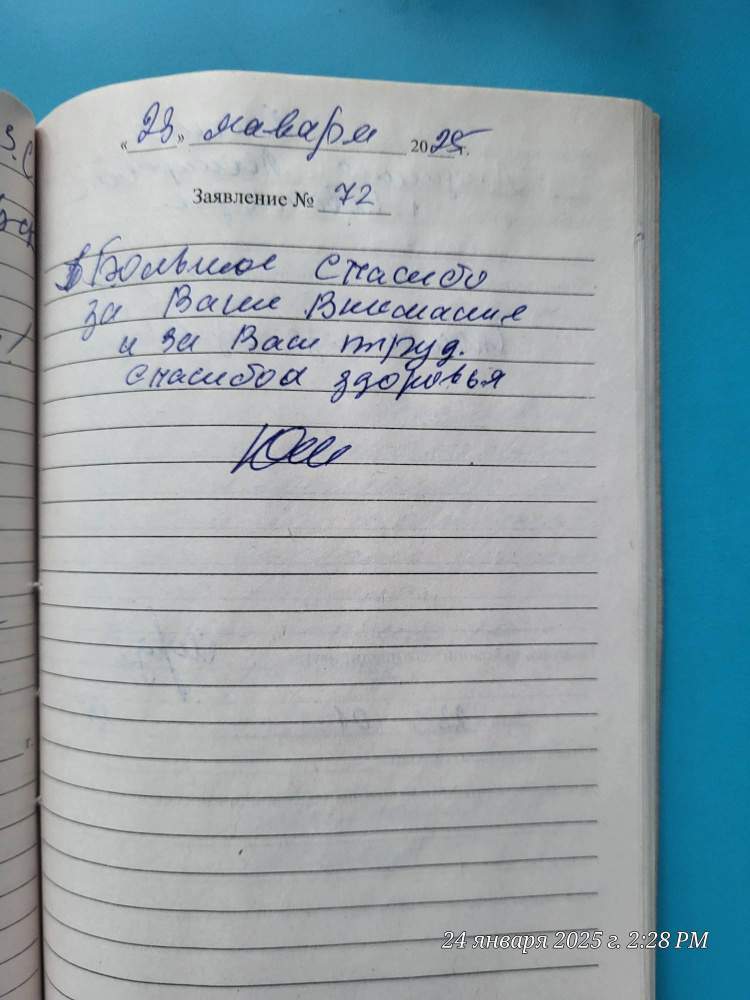 «23» января 2025 г.
Заявление № 72
Большое спасибо
за Ваше Внимание
и за Ваш труд.
спасибо здоровья
24 января 2025 г. 2:28 PM